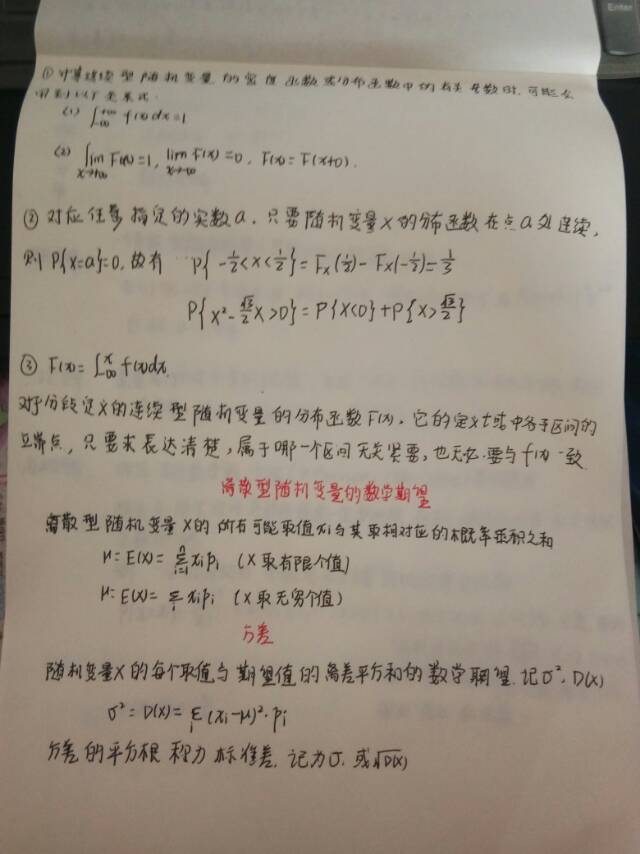 ①计算连续型随机变量的密度函数或分布函数中的有关参数时,可能会
用到以下关系式.
(1) ∫_{-∞}^{+∞} f(x)dx=1
(2) lim_{x→+∞} F(x)=1, lim_{x→-∞} F(x)=0, F(x)=F(x+0).
②对应任意指定的实数a,只要随机变量X的分布函数在点a处连续,
则P{X=a}=0,故有 P{-1/2<X<1/2}=F_X(1/2)-F_X(-1/2)=1/3
P{X²-√3/2X>0}=P{X<0}+P{X>√3/2}
③ F(x)=∫_{-∞}^{x} f(x)dx.
对于分段定义的连续型随机变量的分布函数F(x),它的定义域中各子区间的
端点,只要求表达清楚,属于哪一个区间无关紧要,也无必要与f(x)一致.
离散型随机变量的数学期望
离散型随机变量X的所有可能取值xi与其取相对应的概率乘积之和
μ=E(X)=Σ_{i=1}^{n} xipi (X取有限个值)
μ=E(X)=Σ_{i} xipi (X取无穷个值)
方差
随机变量X的每个取值与期望值的离差平方和的数学期望.记σ²,D(X)
σ²=D(X)=Σ_{i}(xi-μ)²·pi
方差的平方根称为标准差.记为σ,或√D(X)